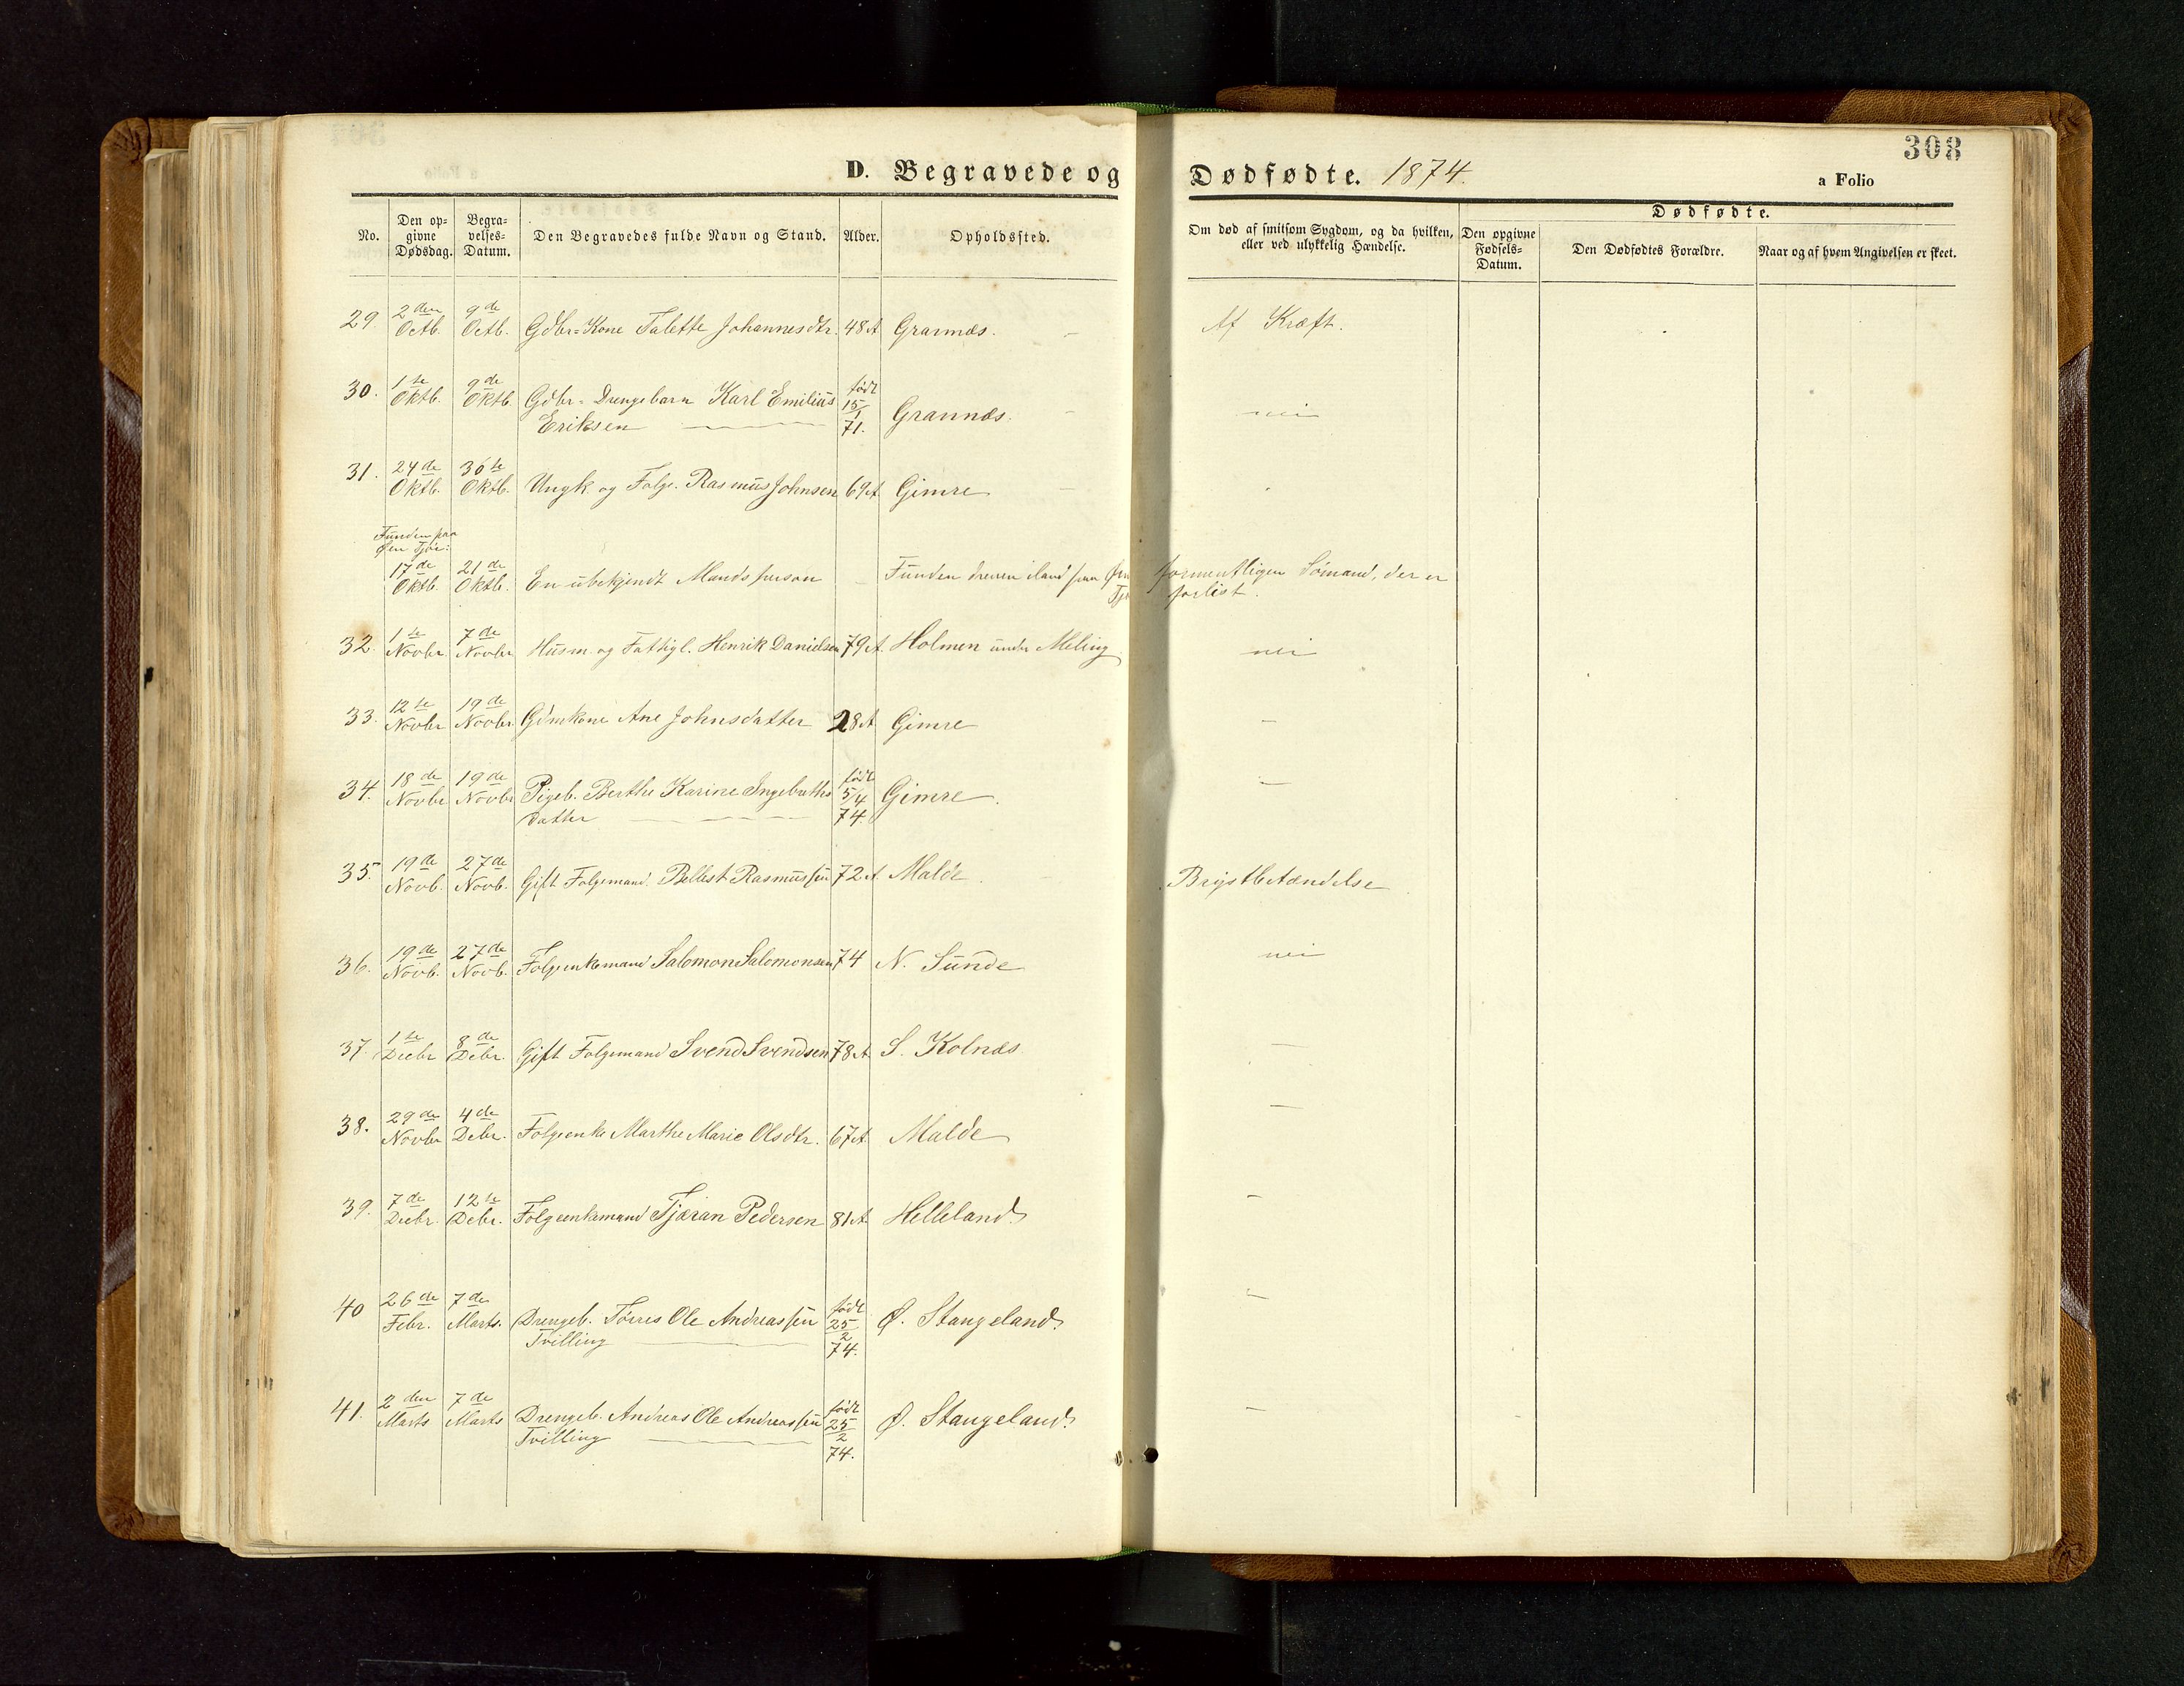 308
D. Begravede og Dødfødte. 1874.
a Folio
No.
Den opgivne Dødsdag.
Begravelses-Datum.
Den Begravedes fulde Navn og Stand.
Alder.
Opholdssted.
Om død af smitsom Sygdom, og da hvilken, eller ved ulykkelig Hændelse.
Dødfødte.
Den opgivne Fødsels-Datum.
Den Dødfødtes Forældre.
Naar og af hvem Angivelsen er skeet.
29. 2den Octb. 9de Octb. Gdbr=Kone Talette Johannesdtr. 48 A Grannæs. - Af Kræft.
30. 1ste Oktb. 9de Oktb. Gdbr= Drengebarn Karl Emilius født 15/1 71. Grannæs. - nei
Eriksen
31. 24de Oktb. 30te Oktb. Ungk. og Folge. Rasmus Johnsen 69 A Gimre -
Funden paa
Øen Tjør:
17de Oktb. 21de Oktb. En ubekjendt Mandsperson - Funden dreven iland paa Øen formentligen Sømand, der er
forlist.
32. 1ste Novbr 7de Novbr Husm. og Fattigl. Henrik Danielsen 79 A. Holmen under Meling nei
33. 12te Novbr 19de Novbr Gdmkone Ane Johnsdatter 28 A Gimre -
34. 18de Novbr 19de Novbr Pigeb. Berthe Karine Ingebreths født 5/4 74. Gimre. -
datter
35. 19de Novb. 27de Novb. Gift Folgemand Pellest Rasmussen 72 A Malde. - Brystbetændelse
36. 19de Novb. 27de Novb. Folgeenkemand Salomon Salomonsen 74 N. Sunde nei
37. 1ste Decbr 8de Debr. Gift Folgemand Svend Svendsen 78 A S. Kolnæs. -
38. 29de Novbr 4de Debr. Folgeenke Marthe Marie Olsdtr. 67 A Malde -
39. 7de Decbr. 12te Debr. Folgeenkemand Tjæran Pedersen 81 A Helleland -
40 26de Febr. 7de Marts. Drengeb. Tørres Ole Andreassen født 25/2 74. Ø. Stangeland. -
Tvilling
41. 2den Marts 7de Marts Drengeb. Andreas Ole Andreassen født 25/2 74. Ø. Stangeland. -
Tvilling